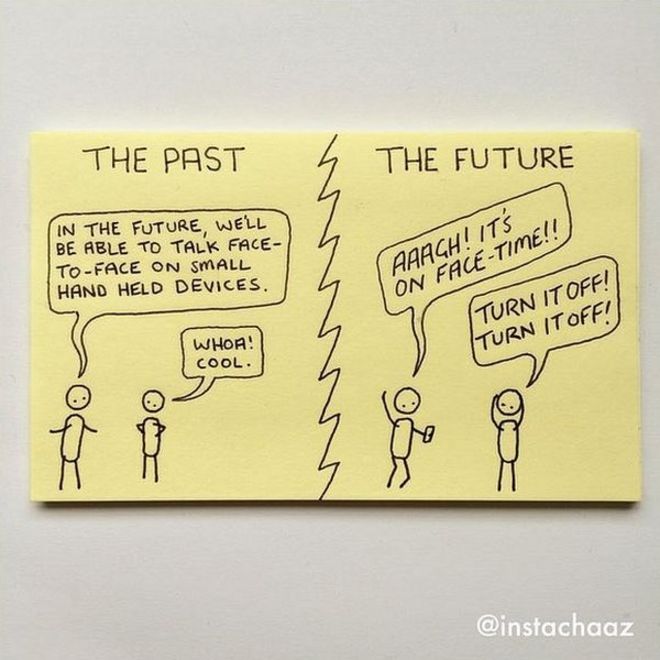 THE PAST
IN THE FUTURE, WE'LL
BE ABLE TO TALK FACE-
TO-FACE ON SMALL
HAND HELD DEVICES.
WHOA!
COOL.
THE FUTURE
AAAGH! IT'S
ON FACE-TIME!!
TURN IT OFF!
TURN IT OFF!
@instachaaz